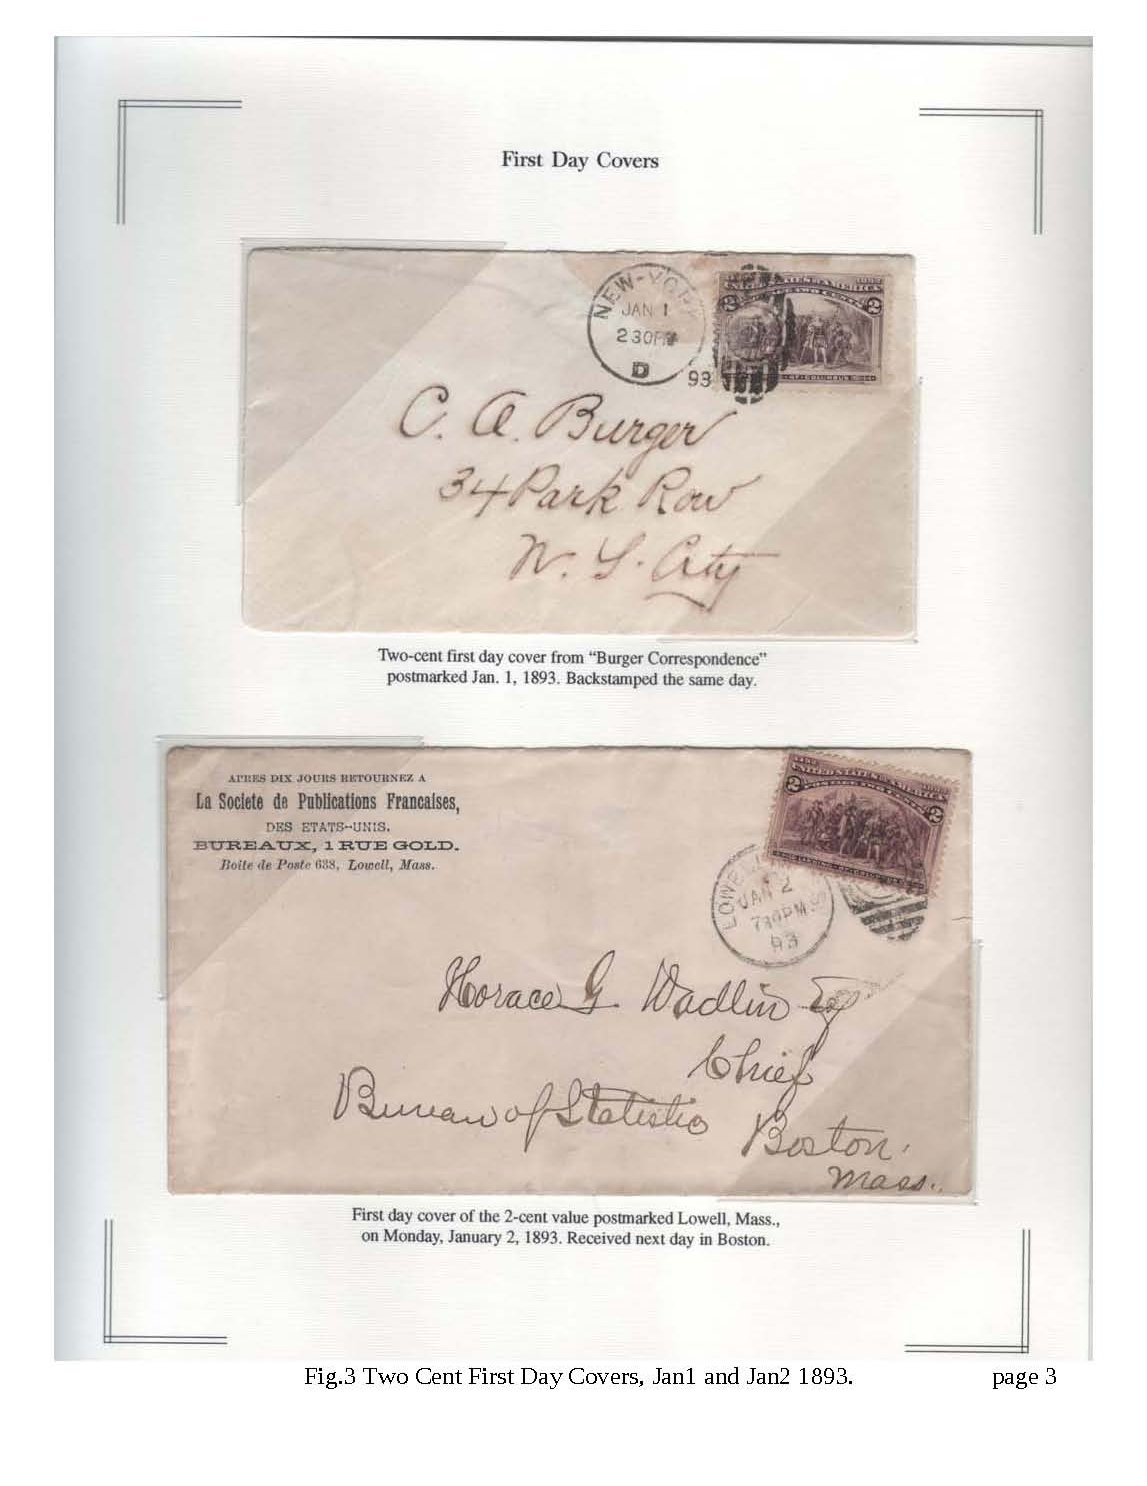 First Day Covers
NEW-YORK
JAN 1
2 30PM
D
93
2 2
C. A. Burger
34 Park Row
N. Y. City
Two-cent first day cover from “Burger Correspondence”
postmarked Jan. 1, 1893. Backstamped the same day.
APRES DIX JOURS RETOURNEZ A
La Societe de Publications Francaises,
DES ETATS-UNIS.
BUREAUX, 1 RUE GOLD.
Boite de Poste 638, Lowell, Mass.
UNITED STATES OF AMERICA
POSTAGE TWO CENTS
2 2
JAN 2
730PM
93
Horace G. Wadlin Esq
Chief
Bureau of Statistics
Boston,
Mass.
First day cover of the 2-cent value postmarked Lowell, Mass.,
on Monday, January 2, 1893. Received next day in Boston.
Fig.3 Two Cent First Day Covers, Jan1 and Jan2 1893. page 3